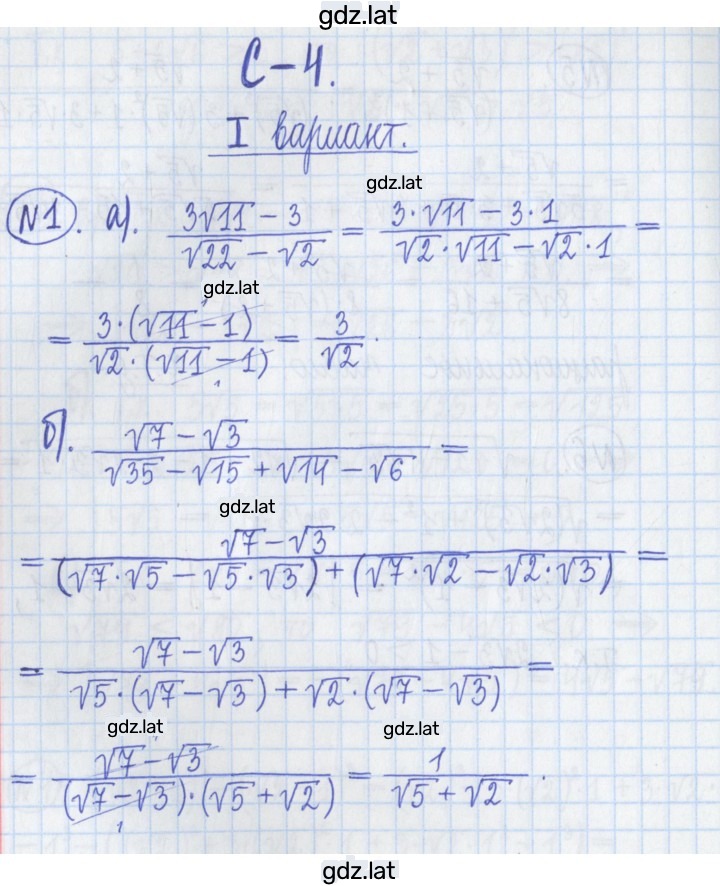 gdz.lat
С-4.
I вариант.
gdz.lat
№1. а). (3√11 - 3)/(√22 - √2) = (3·√11 - 3·1)/(√2·√11 - √2·1) =
gdz.lat
= (3·(√11 - 1))/(√2·(√11 - 1)) = 3/√2.
б). (√7 - √3)/(√35 - √15 + √14 - √6) =
gdz.lat
= (√7 - √3)/((√7·√5 - √5·√3) + (√7·√2 - √2·√3)) =
= (√7 - √3)/(√5·(√7 - √3) + √2·(√7 - √3)) =
gdz.lat gdz.lat
= (√7 - √3)/((√7 - √3)·(√5 + √2)) = 1/(√5 + √2).
gdz.lat